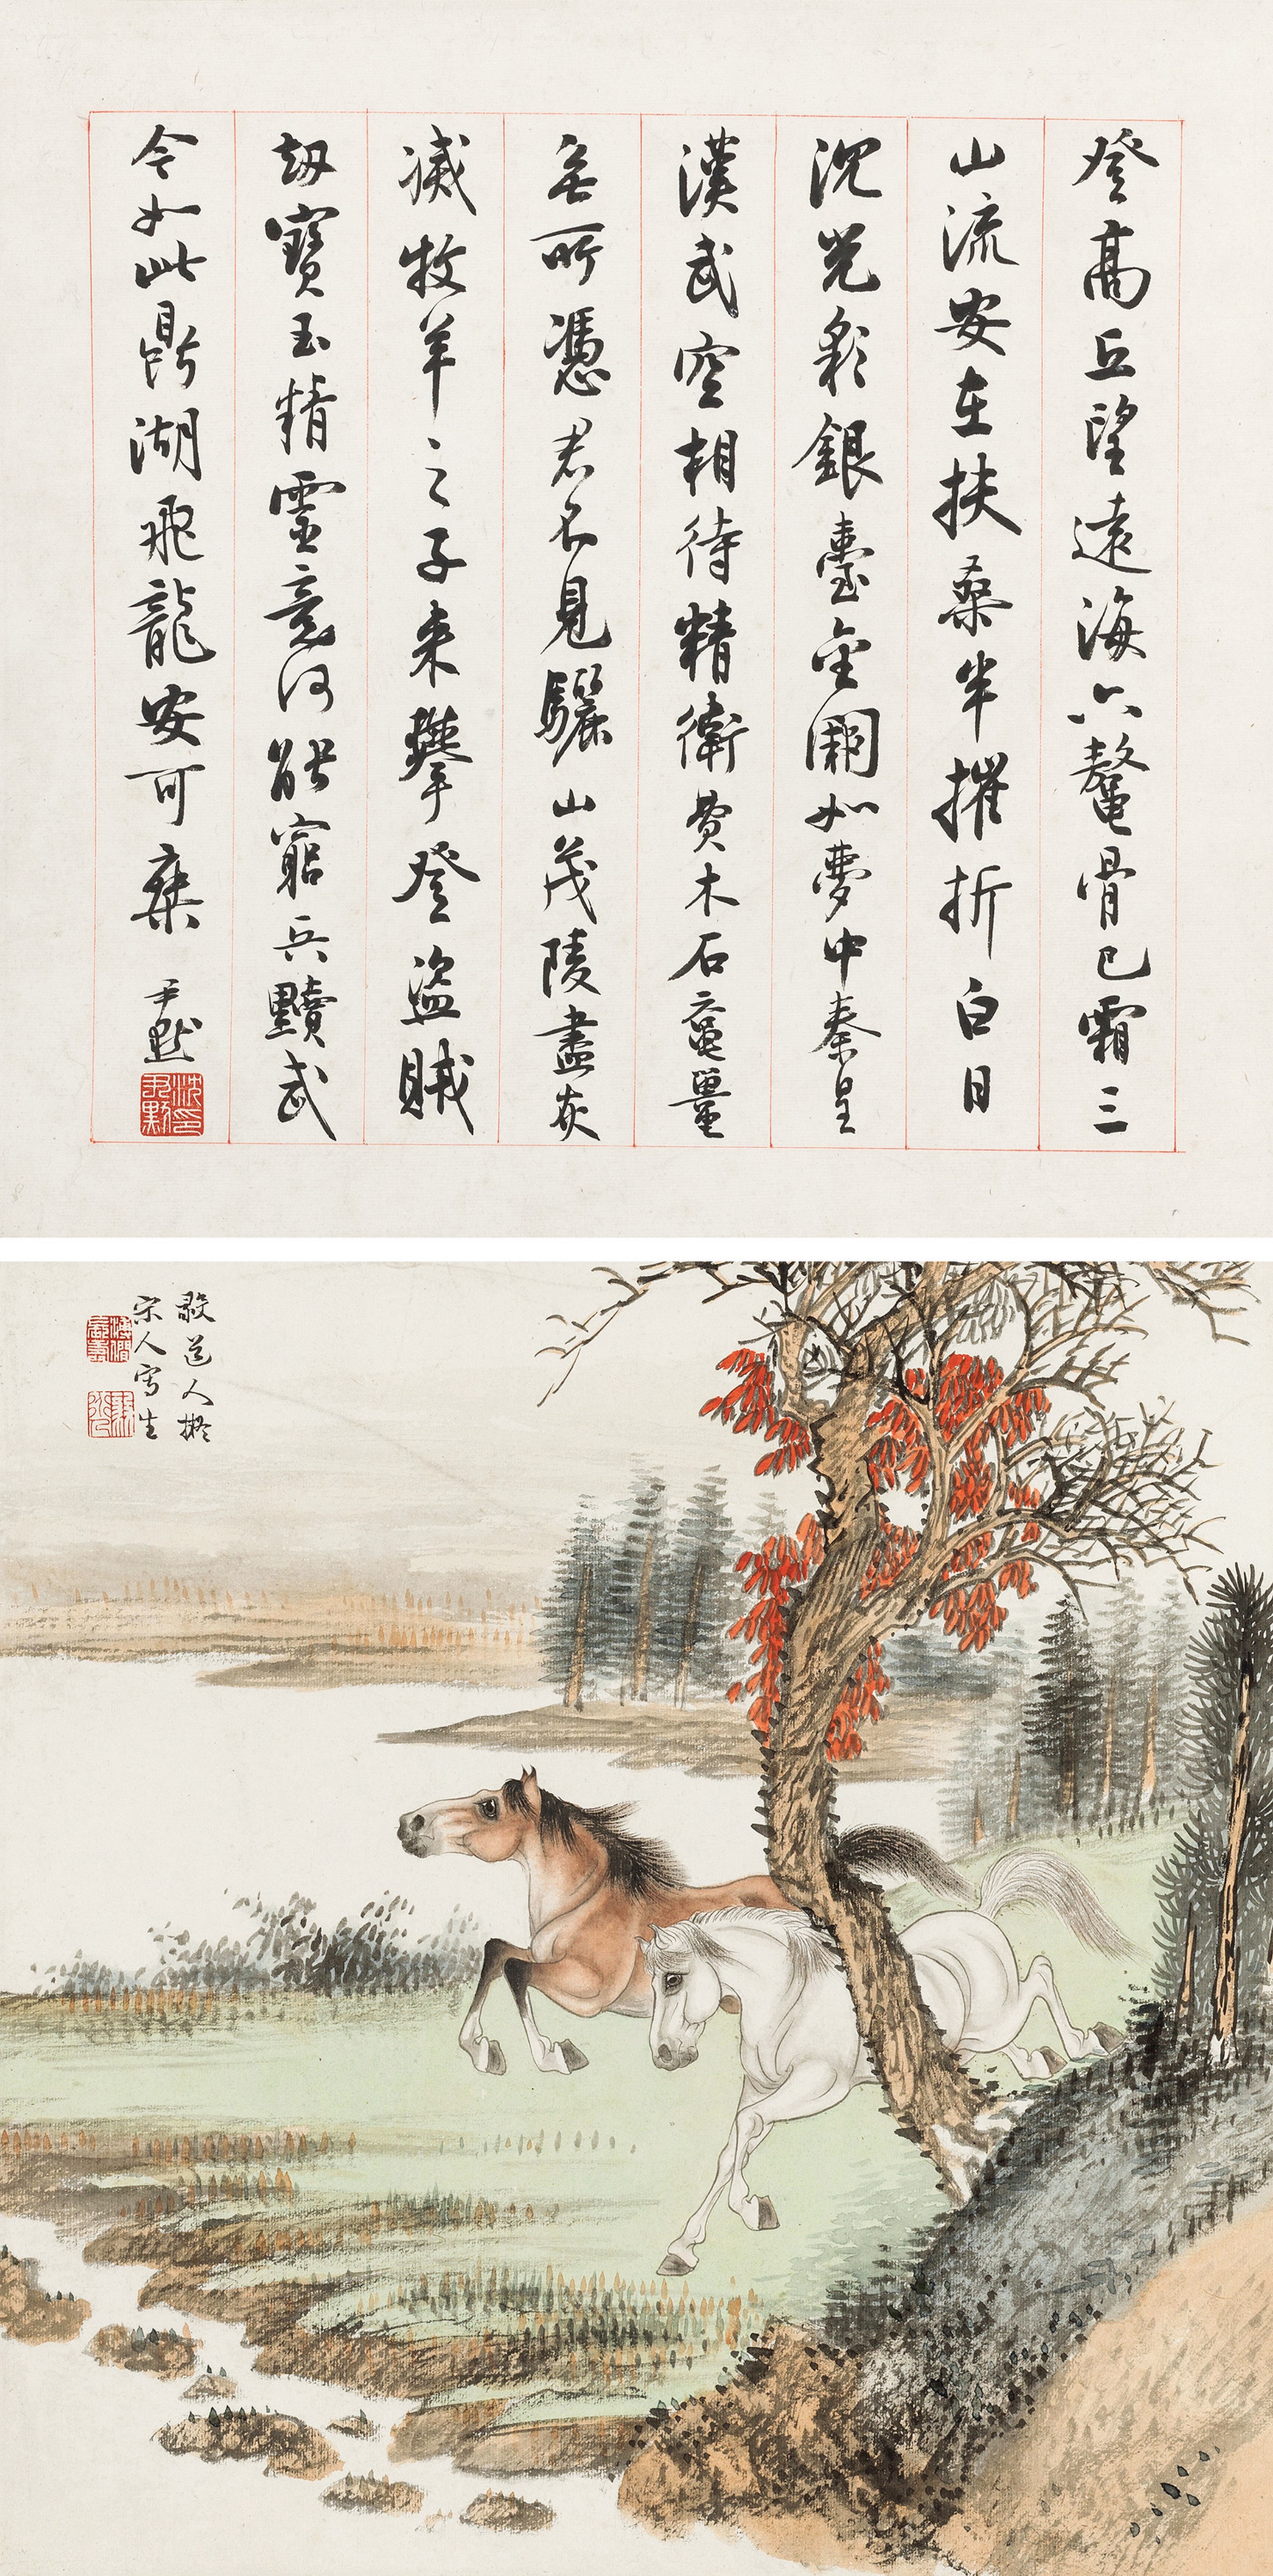 登高丘望遠海六鰲骨已霜三
山流安在扶桑半摧折白日
沉光彩銀臺金闕如夢中秦皇
漢武空相待精衛費木石黿鼉
無所憑君不見驪山茂陵盡灰
滅牧羊之子來攀登盜賊
劫寶玉精靈竟何能窮兵黷武
今如此鼎湖飛龍安可棄 尹默
沈尹默印
道人擬
宋人寫生